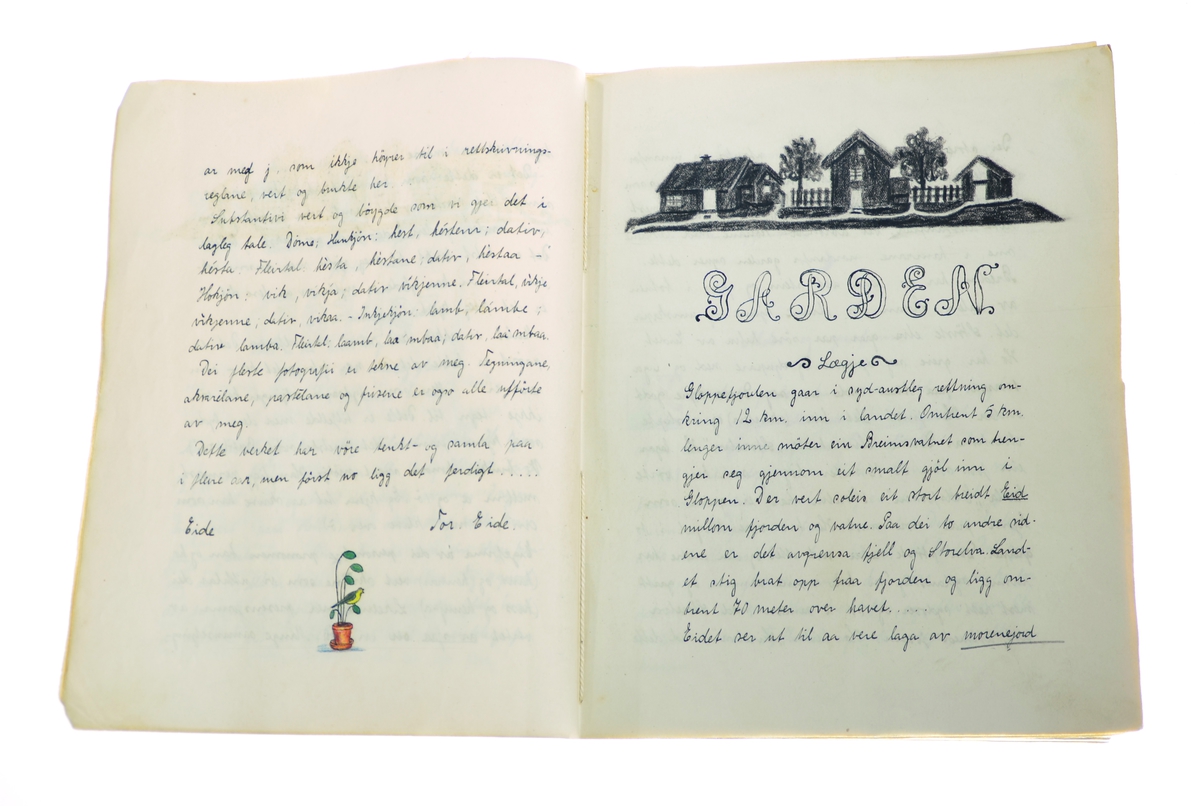 ar med j. som ikkje höyrer til i rettskrivnings-
reglane, vert og brukte her.
Substantivi vert og böygde som vi gjer det i
dagleg tale. Döme; Hankjön: hest, hésten; dativ;
hésta. Fleirtal: hèsta, hèstane; dativ, hèstaa -
Hokjön: vik, vikja; dativ vikjenne. Fleirtal, vikje
vikjenne; dativ, vikaa. - Inkjekjön: lamb, lámbe;
dativ lamba. Fleirtal: laamb, laa'mbaa; dativ, laa'mbaa.
Dei fleste fotografii er tekne av meg. Tegningane,
akvarélane, pastélane og frisene er ogso alle utförte
av meg.
Dette verket har vöre tenkt- og samla paa
i fleire aar, men först no ligg det ferdigt.....
Eide Tor Eide.
GARDEN
Lægje
Gloppefjorden gaar i syd-austleg rettning om-
kring 12 km. inn i landet. Omtrent 5 km.
lenger inne möter ein Breimsvatnet som tren-
gjer seg gjennom eit smalt gjöl inn i
Gloppen. Der vert soleis eit stort breidt Eid
millom fjorden og vatne. Paa dei to andre sid-
ene er det avgrensa fjell og Storelva. Land-
et stig brat opp fraa fjorden og ligg om-
trent 70 meter over havet.....
Eidet ser ut til aa vere laga av morenejord